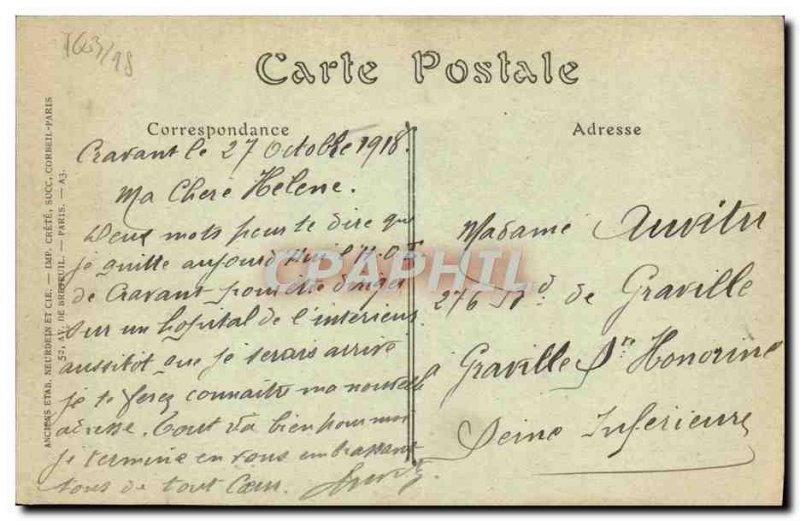 1603/18
Carte Postale
Correspondance
Cravant le 27 Octobre 1918.
Ma Chere Helene.
Deux mots pour te dire que
je quitte aujourd'hui l'H.O.E
de Cravant pour être dirigé
sur un hopital de l'interieur
aussitot que je serais arrivé
je te ferez connaitre ma nouvelle
adresse. Tout va bien pour moi
je termine en vous embrassant
tous de tout Cœur.
Adresse
Madame Auvitu
276 Bd de Graville
Graville Ste Honorine
Seine Inferieure
ANCIENS ETAB. NEURDEIN ET CIE. — IMP. CRÉTÉ, SUCC, CORBEIL-PARIS
52, AV. DE BRETEUIL. — PARIS. — A3.
CPAPHIL